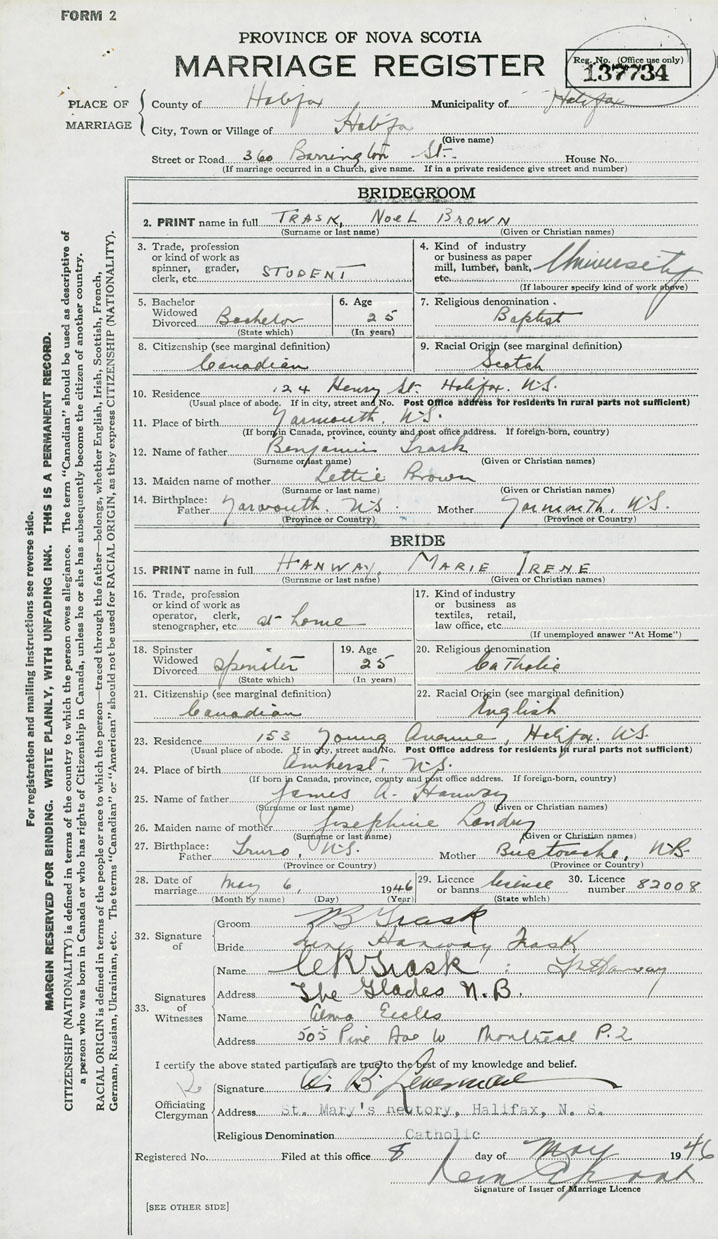 FORM 2
PROVINCE OF NOVA SCOTIA
MARRIAGE REGISTER
Reg. No. (Office use only)
137734
PLACE OF MARRIAGE
County of Halifax Municipality of Halifax
City, Town or Village of Halifax
(Give name)
Street or Road 360 Barrington St. House No.
(If marriage occurred in a Church, give name. If in a private residence give street and number)
BRIDEGROOM
2. PRINT name in full TRASK, NOEL BROWN
(Surname or last name) (Given or Christian names)
3. Trade, profession or kind of work as spinner, grader, clerk, etc. STUDENT
4. Kind of industry or business as paper mill, lumber, bank, etc. University
(If labourer specify kind of work above)
5. Bachelor Widowed Divorced Bachelor
(State which)
6. Age 25
(In years)
7. Religious denomination Baptist
8. Citizenship (see marginal definition)
Canadian
9. Racial Origin (see marginal definition)
Scotch
10. Residence 124 Henry St. Halifax. N.S.
(Usual place of abode. If in city, street and No. Post Office address for residents in rural parts not sufficient)
11. Place of birth Yarmouth, N.S.
(If born in Canada, province, county and post office address. If foreign-born, country)
12. Name of father Benjamin Trask
(Surname or last name) (Given or Christian names)
13. Maiden name of mother Lettie Brown
(Surname or last name) (Given or Christian names)
14. Birthplace: Father Yarmouth. N.S. Mother Yarmouth, N.S.
(Province or Country) (Province or Country)
BRIDE
15. PRINT name in full HANWAY, MARIE IRENE
(Surname or last name) (Given or Christian names)
16. Trade, profession or kind of work as operator, clerk, stenographer, etc. at home
17. Kind of industry or business as textiles, retail, law office, etc.
(If unemployed answer "At Home")
18. Spinster Widowed Divorced Spinster
(State which)
19. Age 25
(In years)
20. Religious denomination
Catholic
21. Citizenship (see marginal definition)
Canadian
22. Racial Origin (see marginal definition)
English
23. Residence 153 Young Avenue, Halifax. N.S.
(Usual place of abode. If in city, street and No. Post Office address for residents in rural parts not sufficient)
24. Place of birth Amherst, N.S.
(If born in Canada, province, county and post office address. If foreign-born, country)
25. Name of father James A. Hanway
(Surname or last name) (Given or Christian names)
26. Maiden name of mother Josephine Landry
(Surname or last name) (Given or Christian names)
27. Birthplace: Father Truro, N.S. Mother Buctouche, N.B.
(Province or Country) (Province or Country)
28. Date of marriage May 6, 1946
(Month by name) (Day) (Year)
29. Licence or banns license
(State which)
30. Licence number 82008
32. Signature of
Groom N B Trask
Bride Irene Hanway Trask
33. Signatures of Witnesses
Name C R Trask : Hanway
Address The Glades N.B.
Name Alma Eccles
Address 505 Pine Ave W Montreal P.Q
I certify the above stated particulars are true to the best of my knowledge and belief.
Officiating Clergyman
Signature
Address St. Mary's Rectory, Halifax, N. S.
Religious Denomination Catholic
Registered No. Filed at this office 8 day of May 1946
Signature of Issuer of Marriage Licence
[SEE OTHER SIDE]
For registration and mailing instructions see reverse side.
MARGIN RESERVED FOR BINDING. WRITE PLAINLY, WITH UNFADING INK. THIS IS A PERMANENT RECORD.
CITIZENSHIP (NATIONALITY) is defined in terms of the country to which the person owes allegiance. The term "Canadian" should be used as descriptive of
a person who was born in Canada or who has rights of Citizenship in Canada, unless he or she has subsequently become the citizen of another country.
RACIAL ORIGIN is defined in terms of the people or race to which the person—traced through the father—belongs, whether English, Irish, Scottish, French,
German, Russian, Ukrainian, etc. The terms "Canadian" or "American" should not be used for RACIAL ORIGIN, as they express CITIZENSHIP (NATIONALITY).